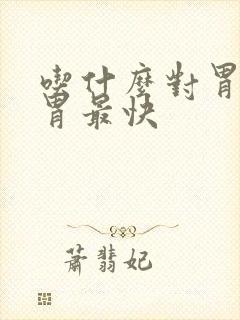 喫什麼對胃
胃最快
蕭翡妃